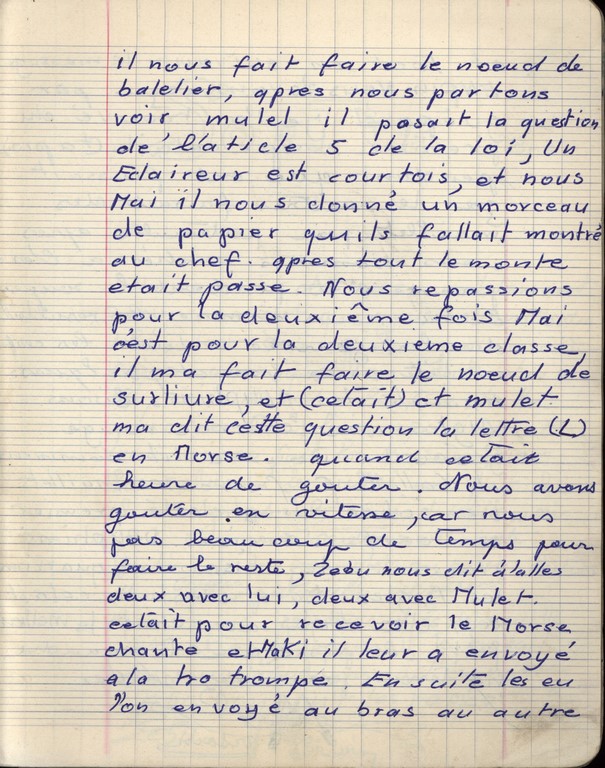 il nous fait faire le noeud de
balelier, apres nous partons
voir mulet il posait la question
de l'aticle 5 de la loi, Un
Eclaireur est courtois, et nous
Mai il nous donné un morceau
de papier qu'ils fallait montré
au chef. apres tout le monte
etait passe. Nous repassions
pour la deuxième fois Mai
c'est pour la deuxieme classe,
il ma fait faire le noeud de
surliure, et (cetait) et mulet
ma dit cette question la lettre (L)
en Morse. quand cetait
heure de gouter. Nous avons
gouter en vitesse, car nous
pas beaucoup de temps pour
faire le reste, nous dit d'alles
deux avec lui, deux avec Mulet.
cetait pour recevoir le Morse
chante et Maki il leur a envoyé
a la tro trompe. En suite les eu
l'on envoyé au bras au autre